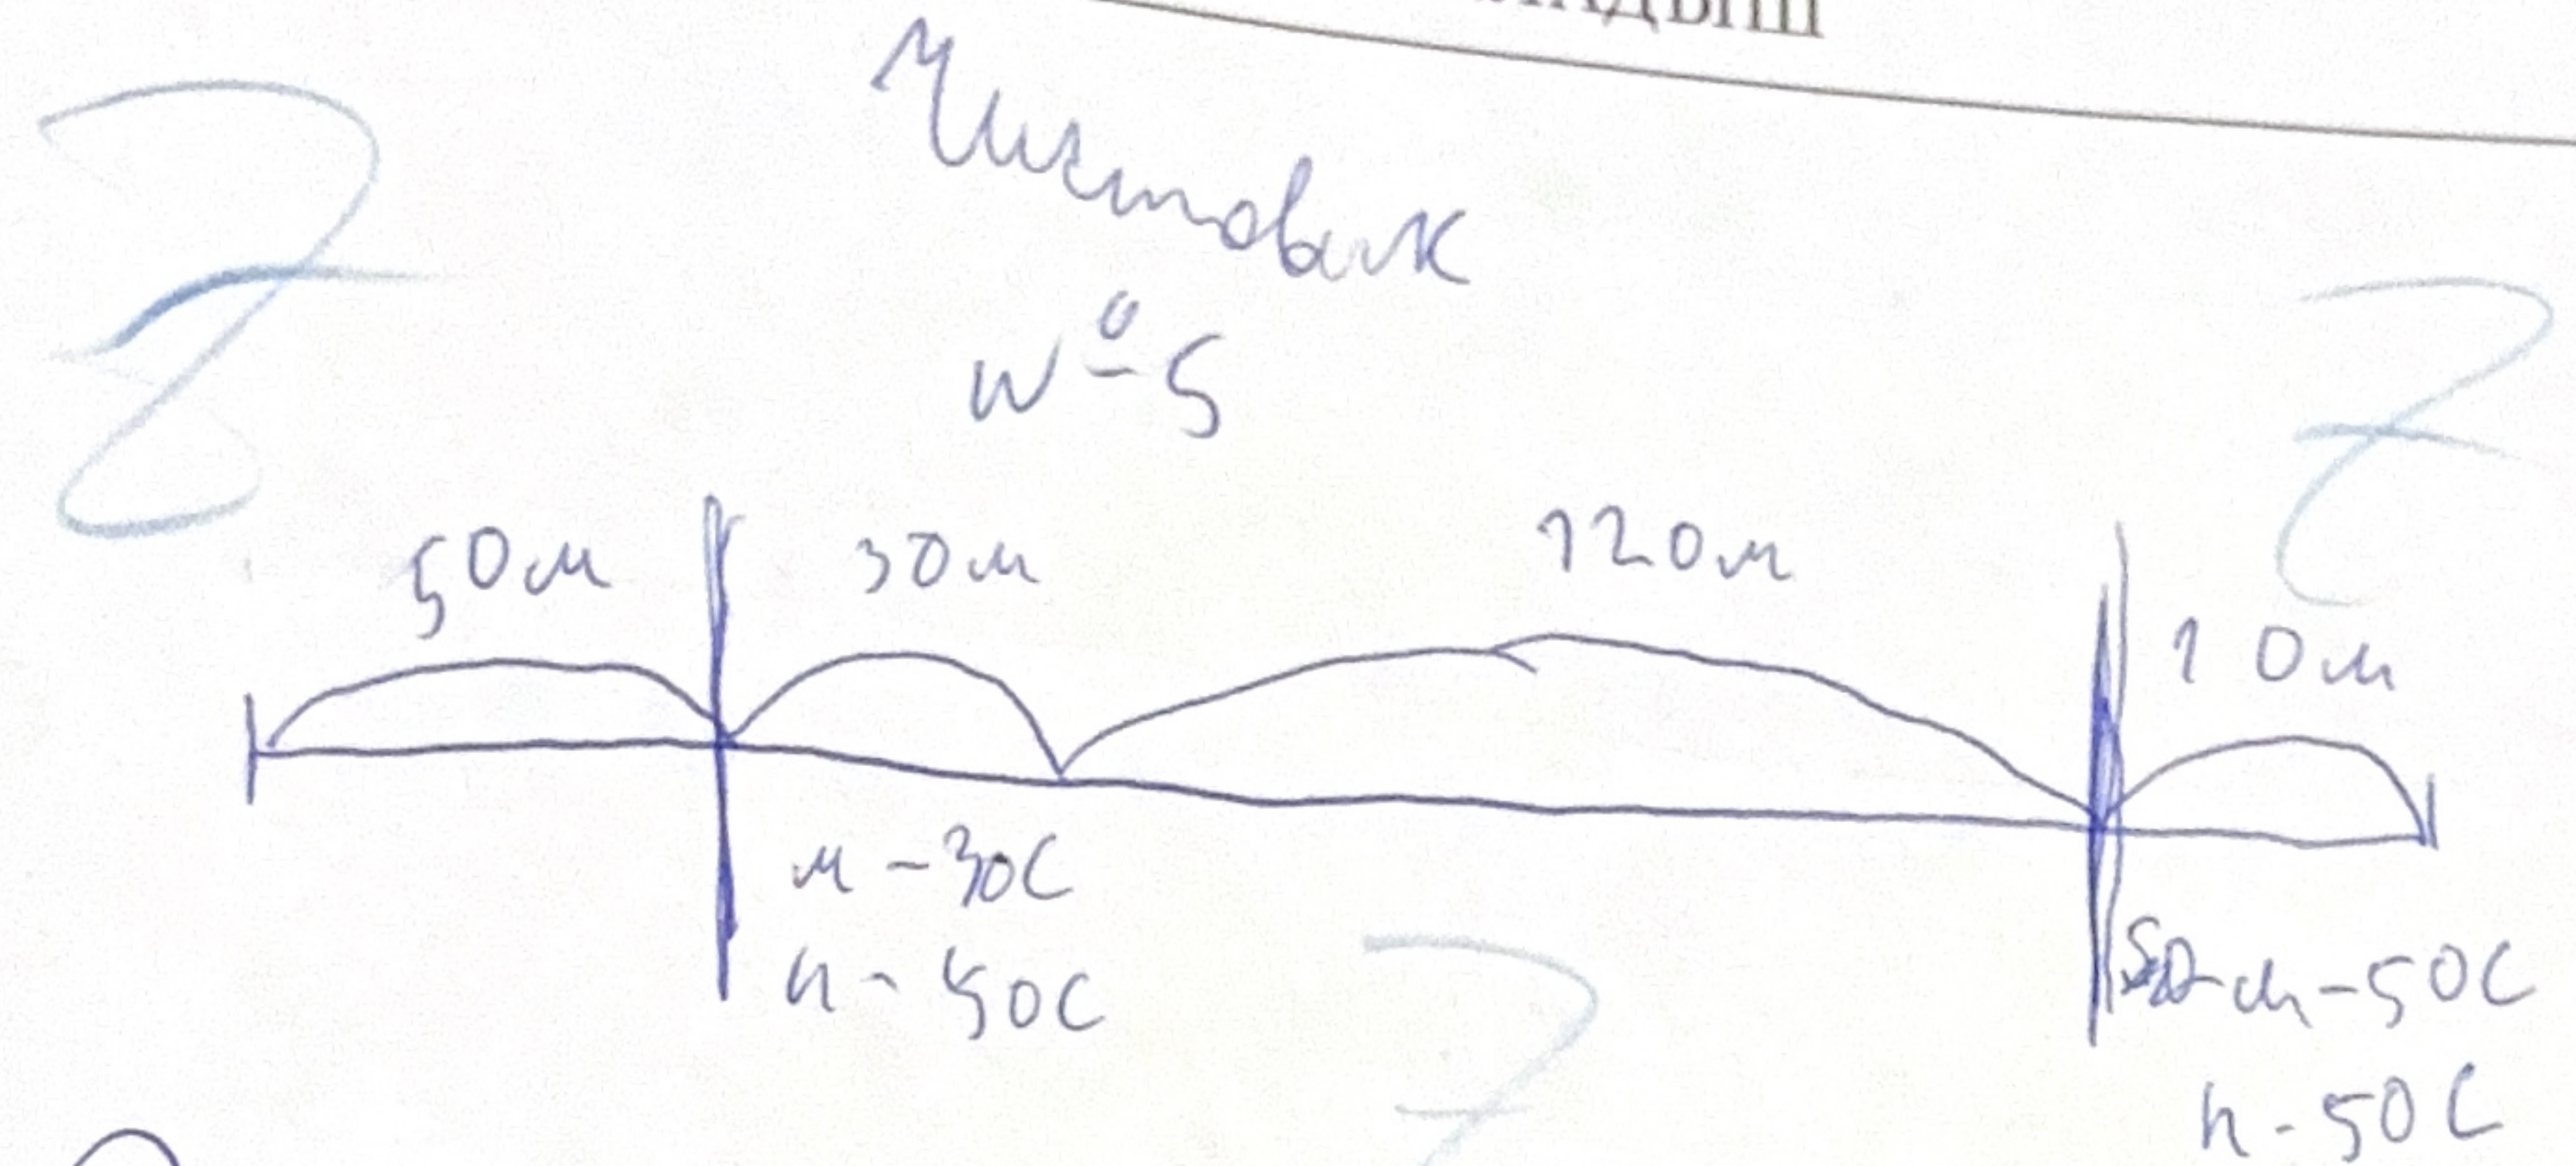 Чистовик
№5
50м 30м 120м 10м
м - 30С
п - 50С
м - 50С
п - 50С